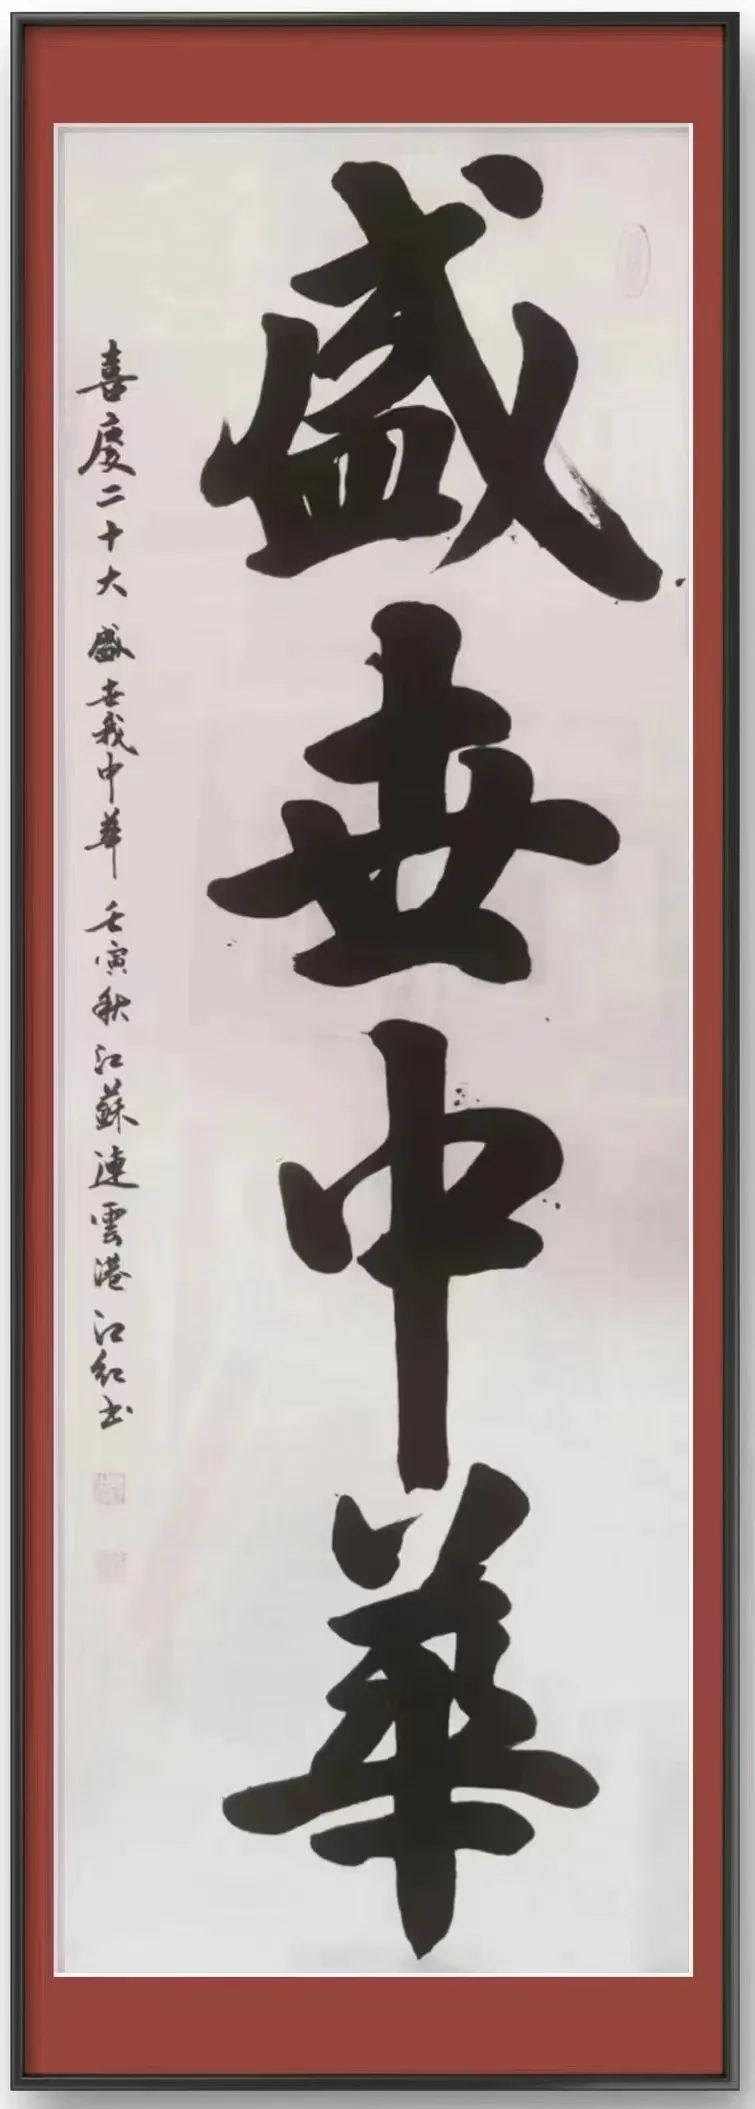 盛世中華
喜慶二十大 盛世我中華 壬寅秋 江蘇連雲港 江紅書